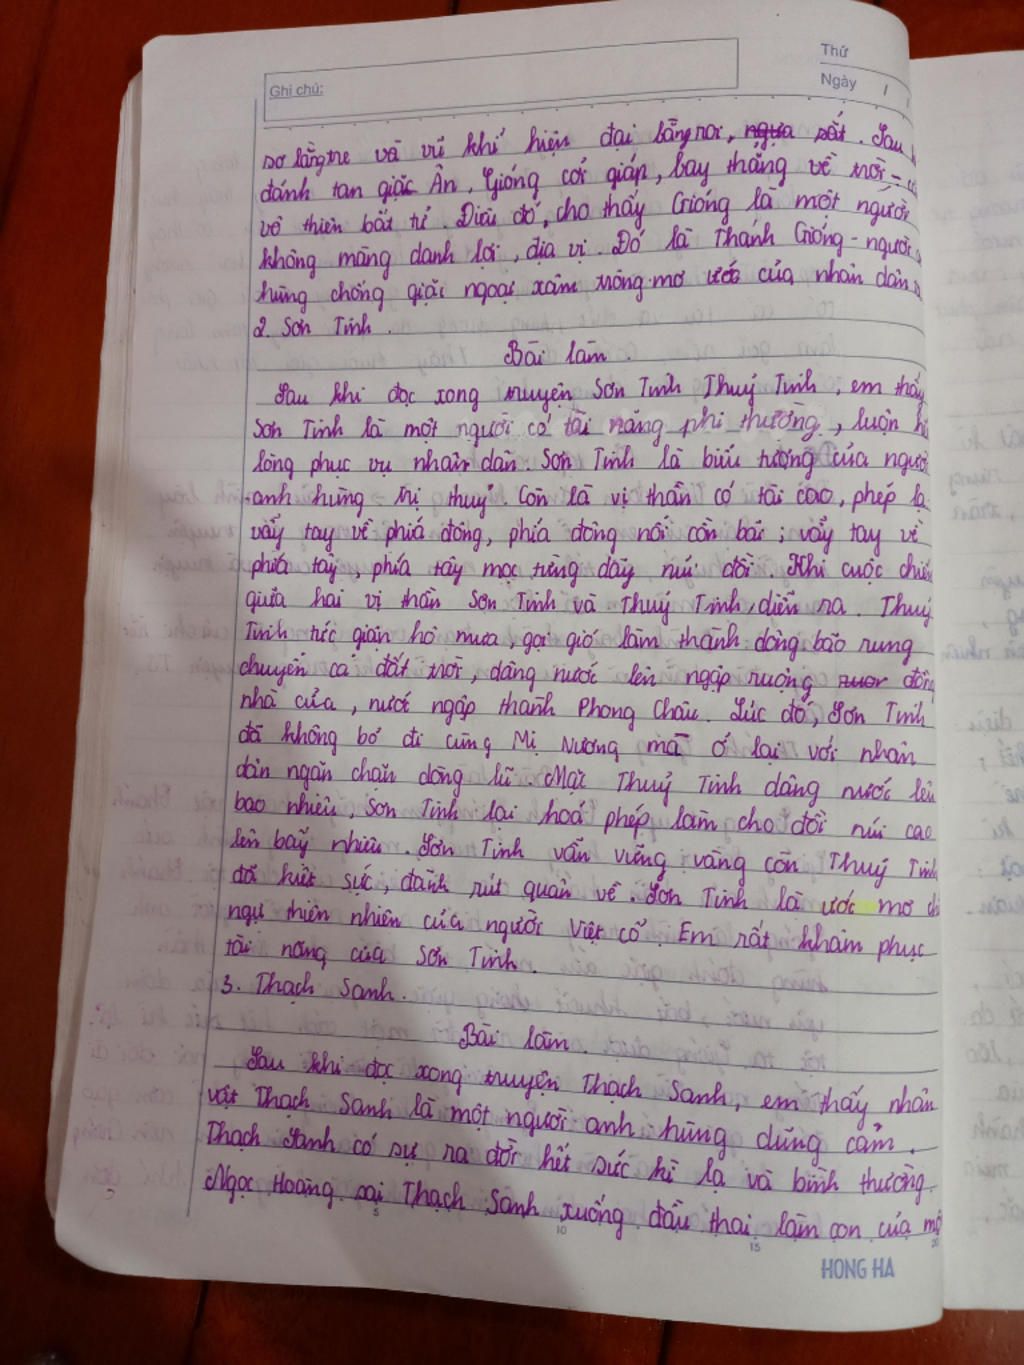 Thứ
Ghi chú:
Ngày / /
sơ bằng tre và vũ khí hiện đại bằng roi, ngựa sắt. Sau
đánh tan giặc Ân, Gióng cởi giáp, bay thẳng về trời -
về thiên bất tử. Điều đó, cho thấy Gióng là một người
không màng danh lợi, địa vị. Đó là Thánh Gióng - người
hùng chống giặc ngoại xâm trong mơ ước của nhân dân
2. Sơn Tinh.
Bài làm.
Sau khi đọc xong truyện Sơn Tinh Thuỷ Tinh, em thấy
Sơn Tinh là một người có tài năng phi thường, luôn
lòng phục vụ nhân dân. Sơn Tinh là biểu tượng của người
anh hùng trị thuỷ. Còn là vị thần có tài cao, phép lạ
vẩy tay về phía đông, phía đông nổi cồn bãi; vẩy tay về
phía tây, phía tây mọc từng dãy núi đồi. Khi cuộc chiến
giữa hai vị thần Sơn Tinh và Thuỷ Tinh, diễn ra. Thuỷ
Tinh tức giận hô mưa, gọi gió làm thành dông bão rung
chuyển cả đất trời, dâng nước lên ngập ruộng đồng
nhà cửa, nước ngập thành Phong Châu. Lúc đó, Sơn Tinh
đã không bỏ đi cùng Mị Nương mà ở lại với nhân
dân ngăn chặn dòng lũ. Mặc Thuỷ Tinh dâng nước lên
bao nhiêu, Sơn Tinh lại hoá phép làm cho đồi núi cao
lên bấy nhiêu. Sơn Tinh vẫn vững vàng còn Thuỷ Tinh
đã kiệt sức, đành rút quân về. Sơn Tinh là ước mơ
ngự thiên nhiên của người Việt cổ. Em rất khâm phục
tài năng của Sơn Tinh.
3. Thạch Sanh.
Bài làm.
Sau khi đọc xong truyện Thạch Sanh, em thấy nhân
vật Thạch Sanh là một người anh hùng dũng cảm.
Thạch Sanh có sự ra đời hết sức kì lạ và bình thường.
Ngọc Hoàng sai Thạch Sanh xuống đầu thai làm con của một
5 10 15 20
HONG HA